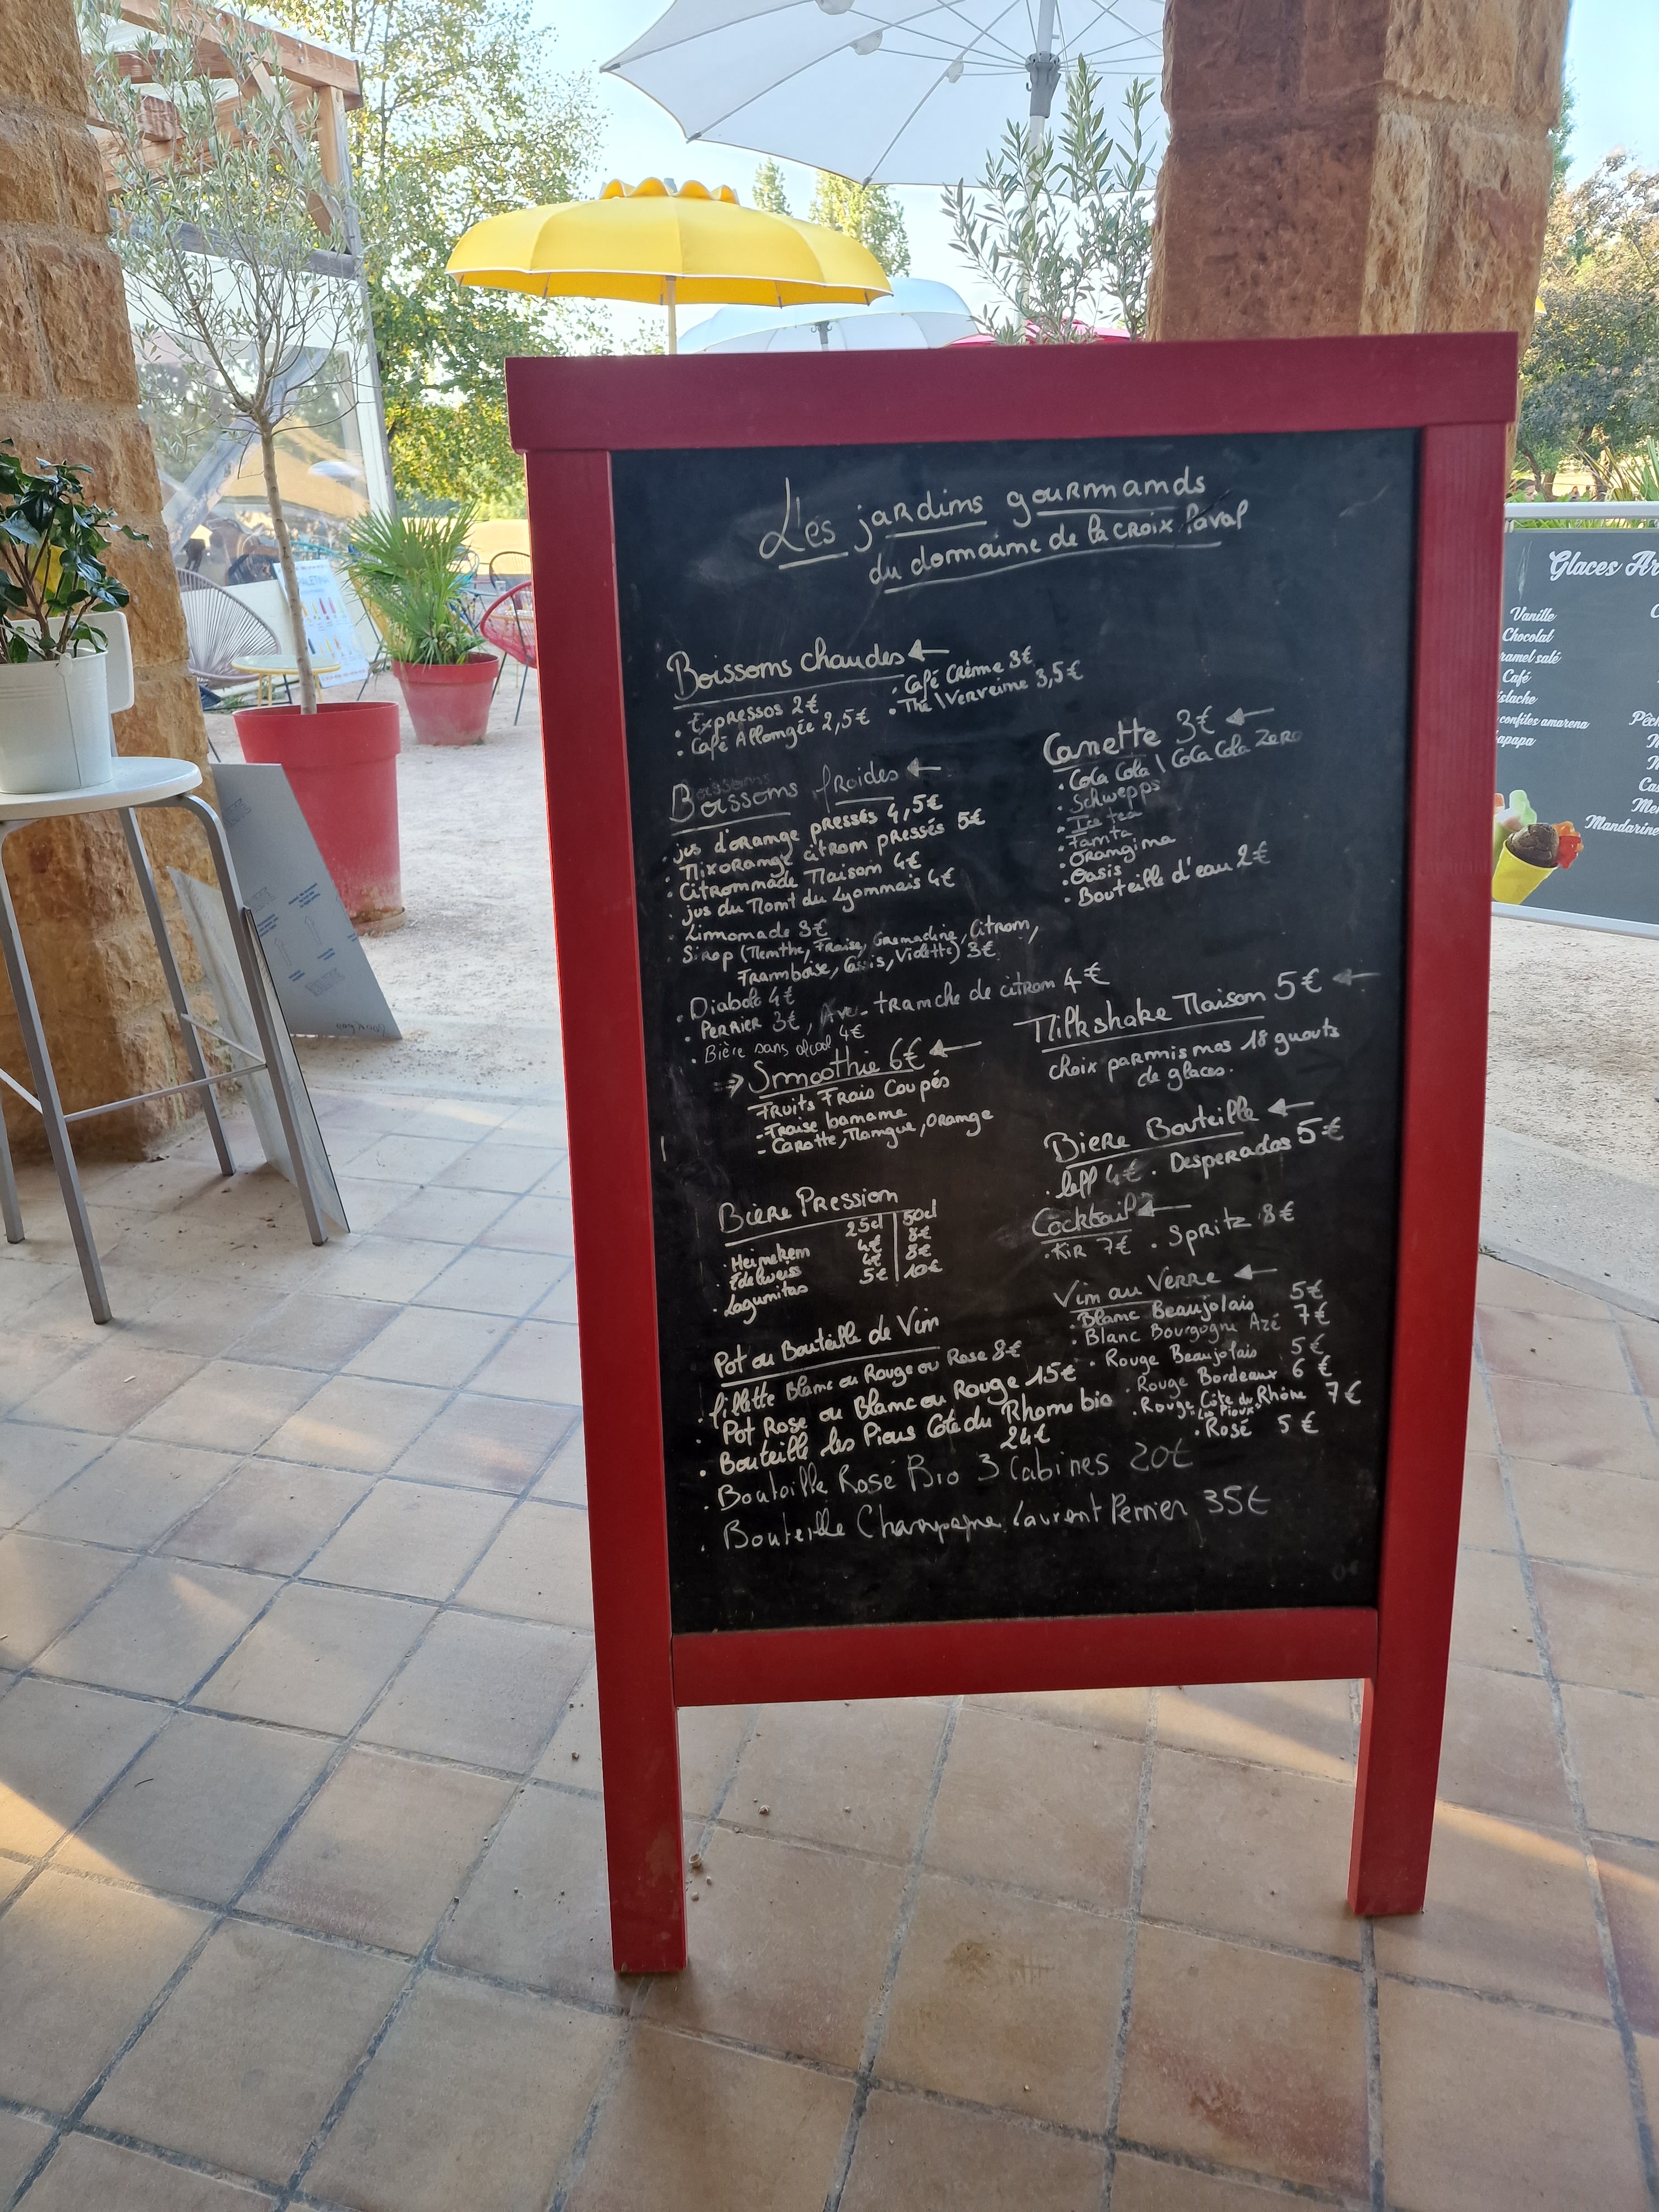 Les jardins gourmands
du domaine de la croix Laval
Boissons chaudes
. Expressos 2€
. Café Allongée 2,5€
. Café Crème 3€
. Thé \ Verveine 3,5€
Boissons froides
. jus d'orange pressés 4,5€
. Mix orange citron pressés 5€
. Citronnade Maison 4€
. jus du Mont du Lyonnais 4€
. Limonade 3€
. Sirop (Menthe, Fraise, Grenadine, Citron,
Framboise, Cassis, Violette) 3€
. Diabolo 4€
. PERRIER 3€, Avec tranche de citron 4€
. Bière sans alcool 4€
Canette 3€
. Cola Cola | Cola Cola Zero
. Schwepps
. Ice tea
. Fanta
. Orangina
. Oasis
. Bouteille d'eau 2€
Smoothie 6€
Fruits Frais Coupés
- Fraise banane
- Carotte, Mangue, Orange
Milkshake Maison 5€
choix parmis nos 18 gouts
de glaces.
Bière Pression
25cl 50cl
. Heineken 4€ 8€
. Edelweiss 4€ 8€
. Lagunitas 5€ 10€
Biere Bouteille
. leff 4€ . Desperados 5€
Cocktail
. Kir 7€ . Spritz 8€
Vin au Verre
. Blanc Beaujolais 5€
. Blanc Bourgogne Azé 7€
. Rouge Beaujolais 5€
. Rouge Bordeaux 6€
. Rouge Côte du Rhône 7€
"Les Pious"
. Rosé 5€
Pot ou Bouteille de Vin
. fillette Blanc ou Rouge ou Rose 8€
. Pot Rose ou Blanc ou Rouge 15€
. Bouteille les Pious Côte du Rhone bio
24€
. Bouteille Rosé Bio 3 Cabines 20€
. Bouteille Champagne Laurent Perrier 35€
Glaces
Vanille
Chocolat
ramel salé
Café
istache
confites amarena
apapa
Mandarine